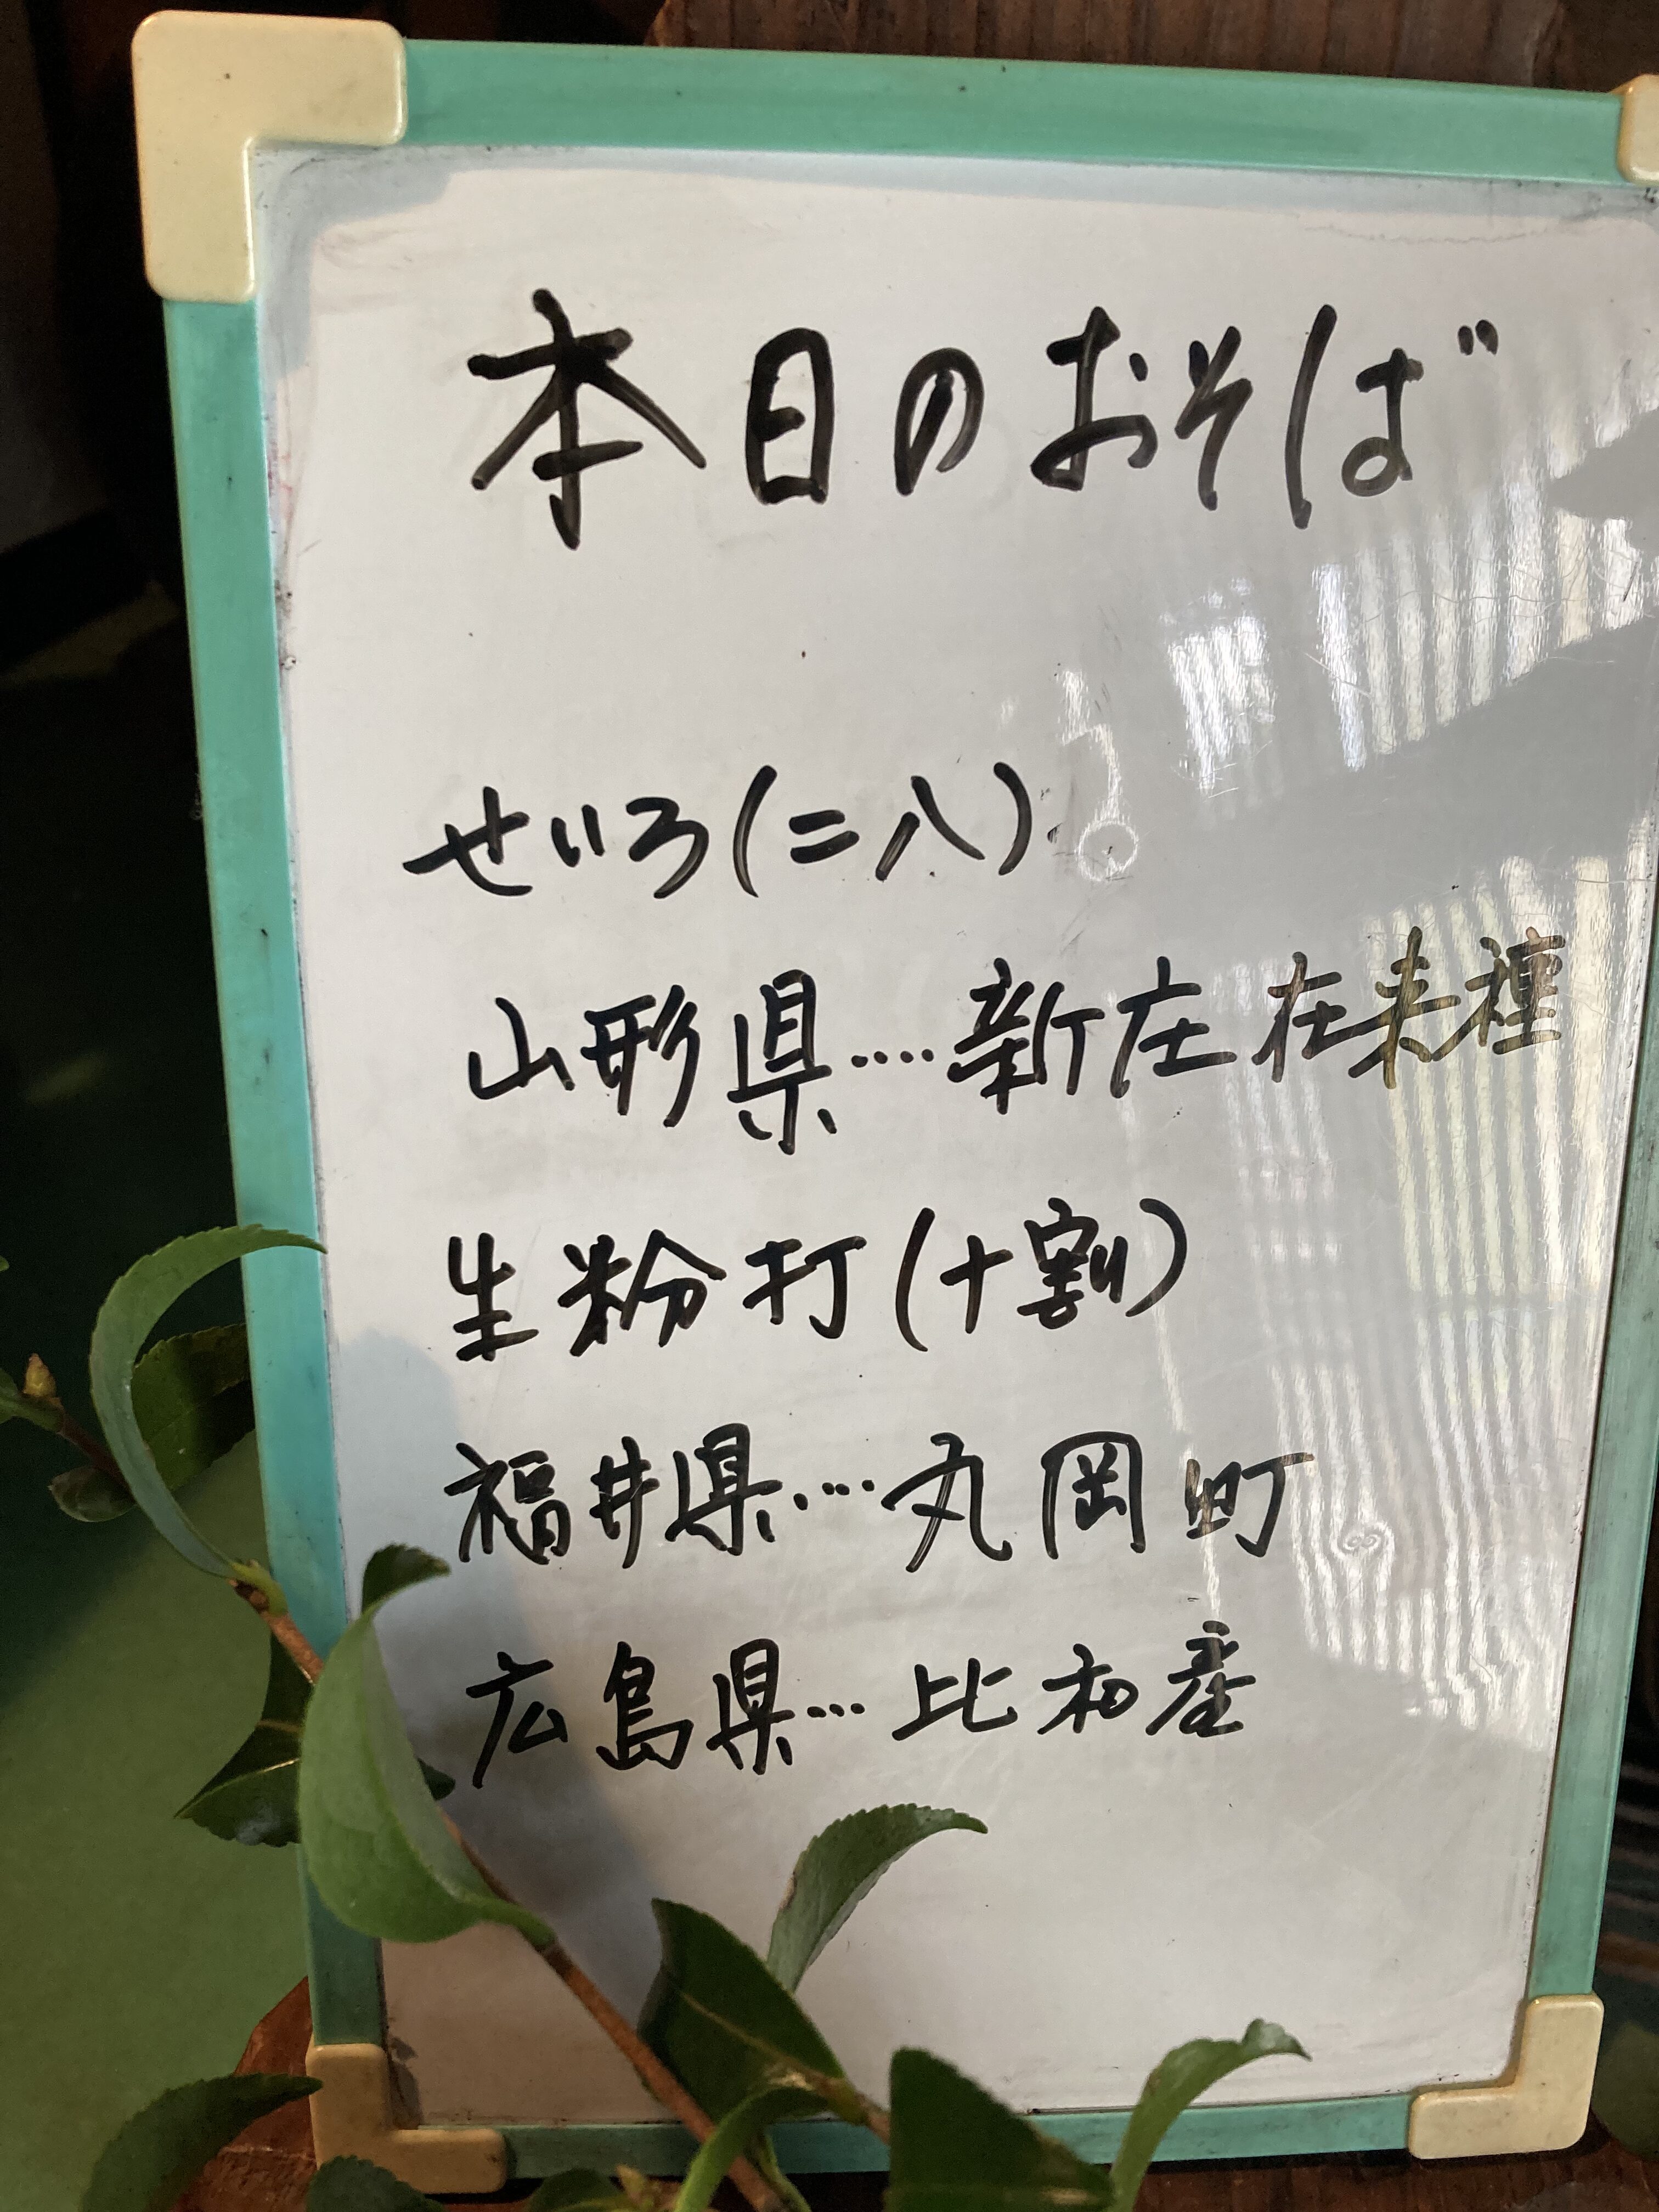 本日のおそば
せいろ(二八)
山形県....新庄在来種
生粉打(十割)
福井県....丸岡町
広島県....比和産